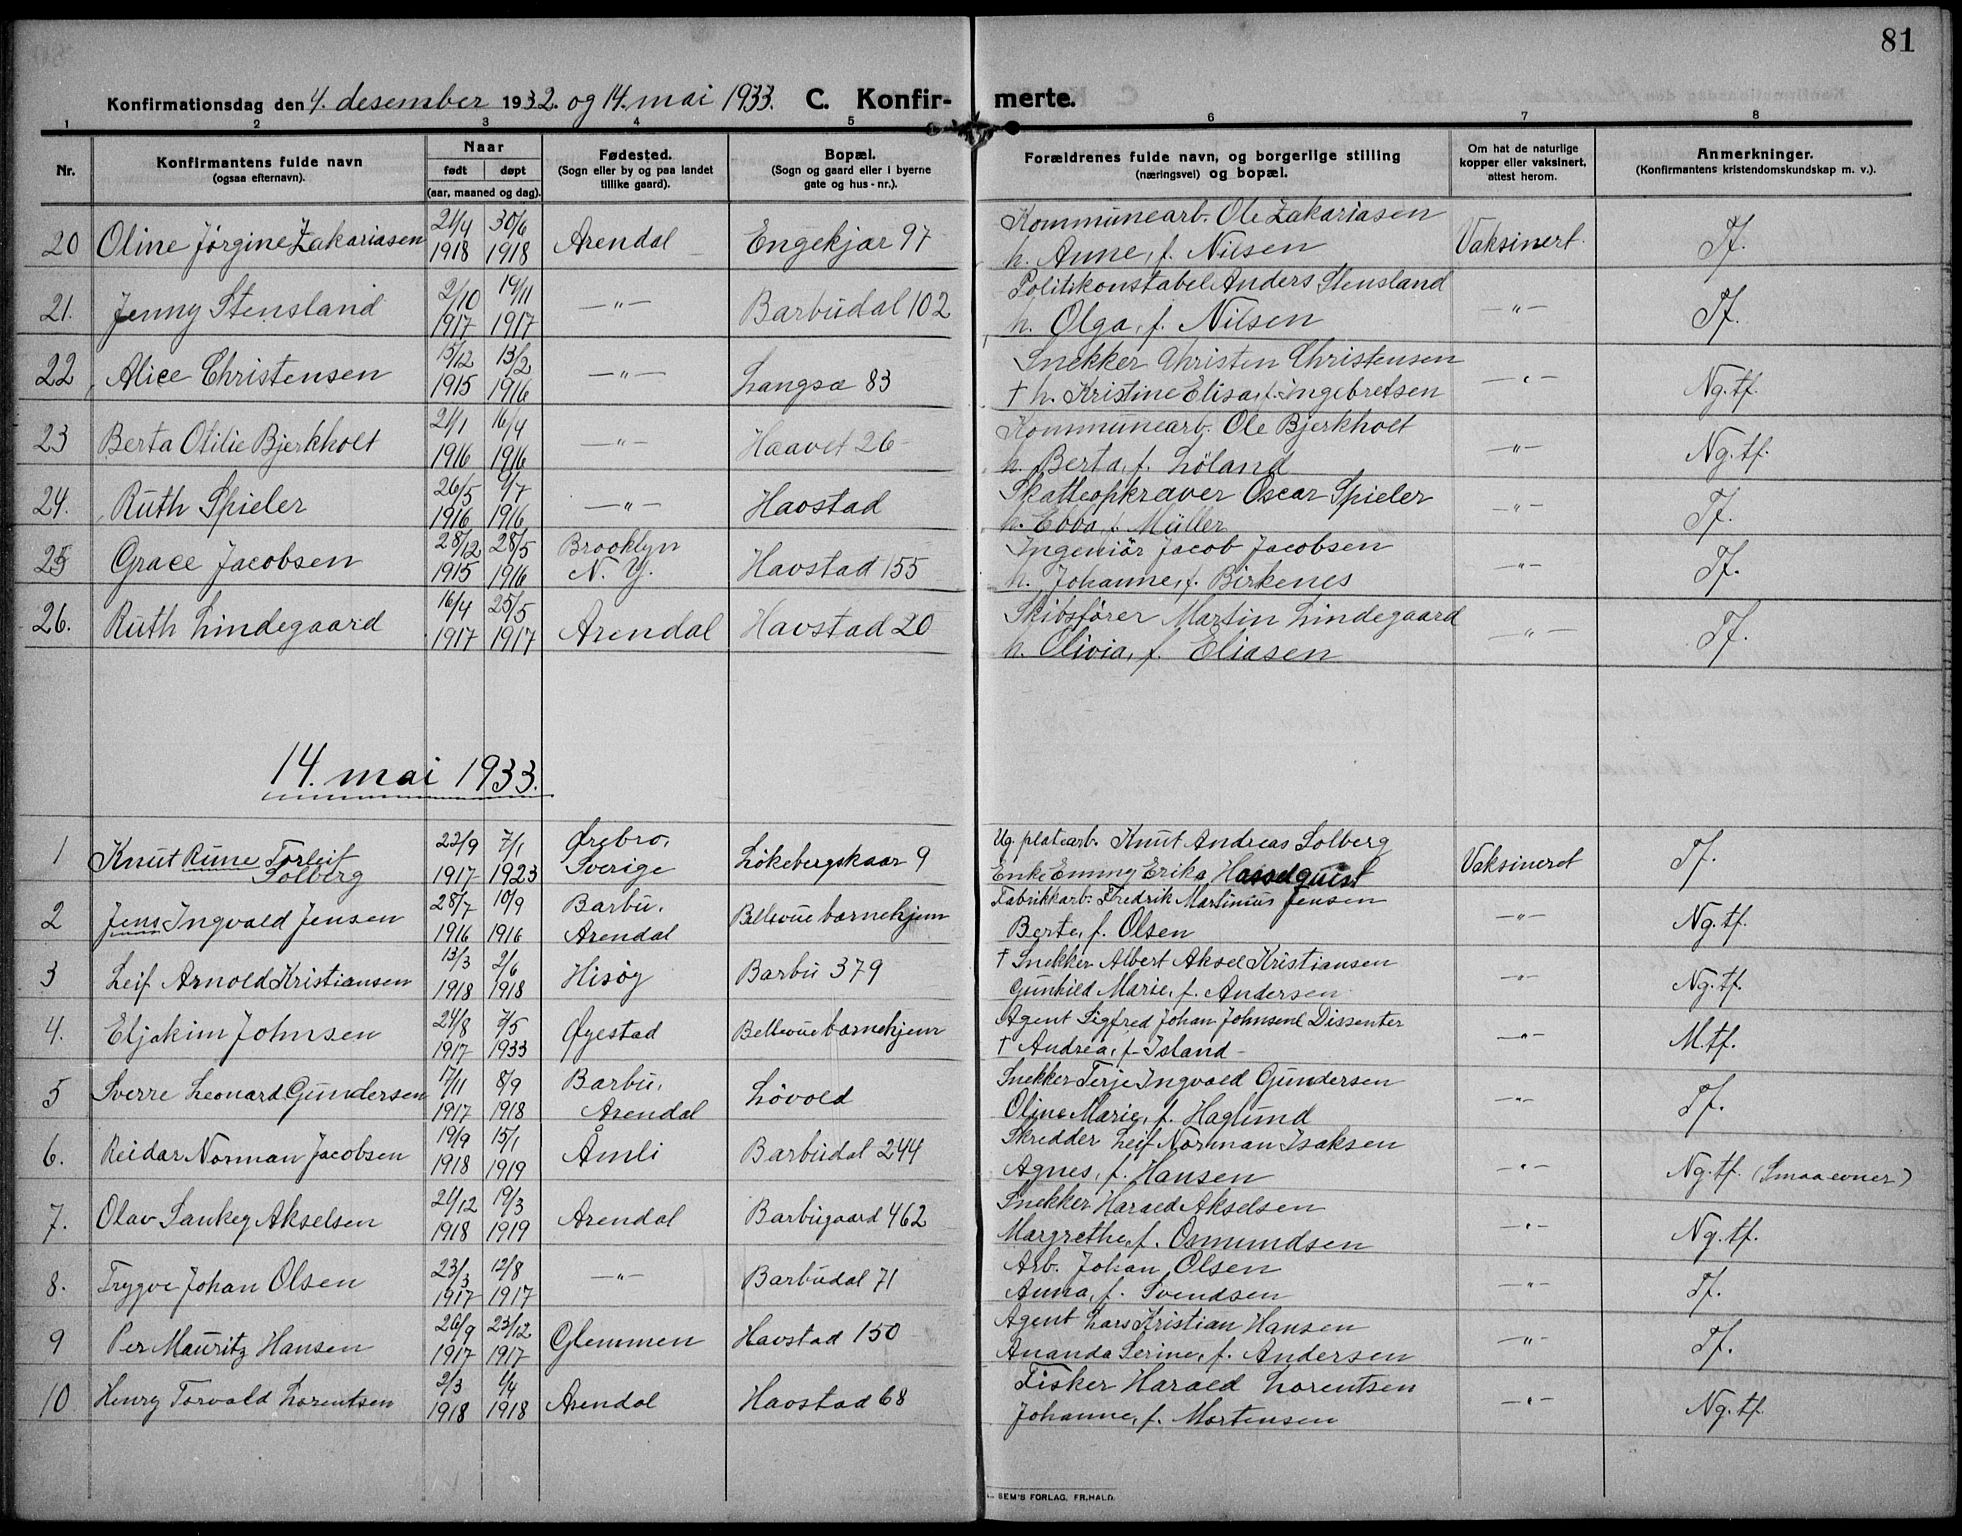 81
Konfirmationsdag den 4. desember 1932. og 14. mai 1933. C. Konfirmerte.
1 2 3 4 5 6 7 8
Nr.
Konfirmantens fulde navn
(ogsaa efternavn).
Naar
født døpt
(aar, maaned og dag).
Fødested.
(Sogn eller by og paa landet
tillike gaard).
Bopæl.
(Sogn og gaard eller i byerne
gate og hus-nr.).
Forældrenes fulde navn, og borgerlige stilling
(næringsvei) og bopæl.
Om hat de naturlige
kopper eller vaksinert,
attest herom.
Anmerkninger.
(Konfirmantens kristendomskundskap m. v.).
20 Oline Jörgine Zakariasen 21/4 1918 30/6 1918 Arendal Engekjær 97 Kommunearb. Ole Zakariasen
h. Anne, f. Nilsen Vaksinert. Tf.
21. Jenny Stensland 2/10 1917 19/11 1917 —"— Barbudal 102 Politikonstabel Anders Stensland
h. Olga, f. Nilsen —"— Tf.
22 Alice Christensen 15/12 1915 13/2 1916 —"— Langsæ 83 Snekker Christen Christensen
† h. Kristine Elisa, f. Ingebretsen —"— Ng. tf.
23 Berta Otilie Bjerkholt 21/1 1916 16/4 1916 —"— Haavet 26 Kommunearb. Ole Bjerkholt
h. Berta, f. Löland —"— Ng. tf.
24. Ruth Spieler 26/5 1916 9/7 1916 —"— Havstad Skatteopkræver Oscar Spieler
h. Ebba, f. Müller —"— Tf.
25 Grace Jacobsen 28/12 1915 28/5 1916 Brooklyn
N. Y. Havstad 155 Ingeniör Jacob Jacobsen
h. Johanne, f. Birkenes —"— Tf.
26. Ruth Lindegaard 16/4 1917 25/5 1917 Arendal Havstad 20 Skibsförer Martin Lindegaard
h. Olivia, f. Eliasen —"— Tf.
14. mai 1933.
1 Knut Rune Torleif
Solberg 23/9 1917 7/1 1923 Ørebro,
Sverige Lökebergskaar 9 Ug. platearb. Knut Andreas Solberg
Enke Emmy Erika Hasselquist Vaksinert Tf.
2 Jens Ingvald Jensen 28/7 1916 10/9 1916 Barbu,
Arendal Bellevue barnehjem Fabrikkarb. Fredrik Martinius Jensen
Berte, f. Olsen —"— Ng. tf.
3 Leif Arnold Kristiansen 13/3 1918 2/6 1918 Hisöy Barbu 379 † Snekker Albert Aksel Kristiansen
Gunhild Marie, f. Andersen —"— Ng. tf.
4. Eljakim Johnsen 24/8 1917 7/5 1933 Øyestad Bellevue barnehjem Agent Sigfred Johan Johnsen Dissenter
† Andrea, f. Island —"— M. tf.
5 Sverre Leonard Gundersen 17/11 1917 8/9 1918 Barbu,
Arendal Lövold Snekker Terje Ingvald Gundersen
Oline Marie, f. Haglund —"— Tf.
6. Reidar Norman Jacobsen 19/9 1918 15/1 1919 Åmli Barbudal 244 Skredder Leif Norman Isaksen
Agnes, f. Hansen —"— Ng. tf. (Smaa evner)
7. Olav Sankey Akselsen 21/12 1918 19/3 1919 Arendal Barbugaard 462 Snekker Harald Akselsen
Margrethe, f. Osmundsen —"— Ng. tf.
8. Trygve Johan Olsen 23/3 1917 12/8 1917 —"— Barbudal 71 Arb. Johan Olsen
Anna, f. Svendsen —"— Tf.
9 Per Mauritz Hansen 26/9 1917 23/12 1917 Glemmen Havstad 150 Agent Lars Kristian Hansen
Ananda Serine, f. Andersen —"— Tf.
10 Henry Torvald Lorentsen 2/3 1918 1/4 1918 Arendal Havstad 68 Fisker Harald Lorentsen
Johanne, f. Mortensen —"— Ng. tf.
SEM'S FORLAG, FR.HALD.